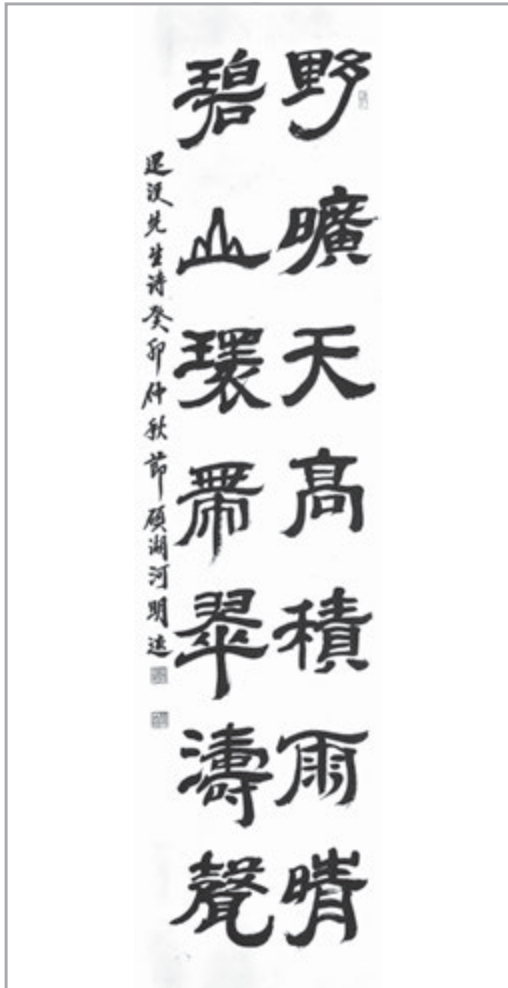 野曠天高積雨晴
碧山環帶翠濤聲
先生诗癸卯仲秋節硕湖河明远